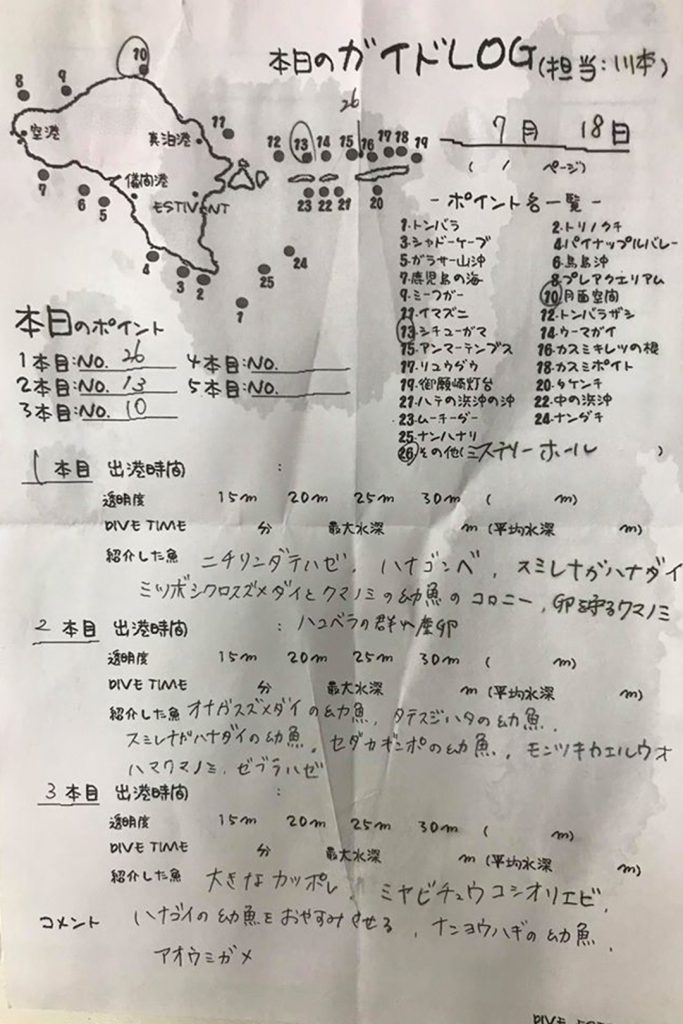 本日のガイドLOG(担当:川本)
7月 18日
( / ページ)
8 9 10
空港 真泊港 11
7 儀間港
6 5 ESTIVANT
4 3 2 1 25 24
26
12 13 14 15 16 17 18 19
23 22 21 20
- ポイント名一覧 -
1.トンバラ 2.トリノクチ
3.シャドーケーブ 4.パイナップルバレー
5.ガラサー山沖 6.鳥島沖
7.鹿児島の海 8.プレアクエリアム
9.ミーフガー 10.月面空間
11.イマズニ 12.トンバラザシ
13.シチューガマ 14.ウーマガイ
15.アンマーテンブス 16.カスミキレツの根
17.リュウダウ 18.カスミポイト
19.御願崎灯台 20.タケンチ
21.ハテの浜沖の沖 22.中の浜沖
23.ムーチーダー 24.ナンダキ
25.ナンハナリ
26.その他(ミステリーホール )
本日のポイント
1本目:NO. 26 4本目:NO.
2本目:NO. 13 5本目:NO.
3本目:NO. 10
1本目 出港時間 :
透明度 15m 20m 25m 30m ( m)
DIVE TIME 分 最大水深 m (平均水深 m)
紹介した魚 ニチリンダテハゼ、ハナゴンベ、スミレナガハナダイ
ミツボシクロスズメダイとクマノミの幼魚のコロニー、卵を守るクマノミ
ハコベラの群れ産卵
2本目 出港時間 :
透明度 15m 20m 25m 30m ( m)
DIVE TIME 分 最大水深 m (平均水深 m)
紹介した魚 オナガスズメダイの幼魚、タテスジハタの幼魚、
スミレナガハナダイの幼魚、セダカギンポの幼魚、モンツキカエルウオ
ハマクマノミ、ゼブラハゼ
3本目 出港時間 :
透明度 15m 20m 25m 30m ( m)
DIVE TIME 分 最大水深 m (平均水深 m)
紹介した魚 大きなカッポレ、ミヤビチュウコシオリエビ、
コメント ハナゴイの幼魚をおやすみさせる、ナンヨウハギの幼魚、
アオウミガメ